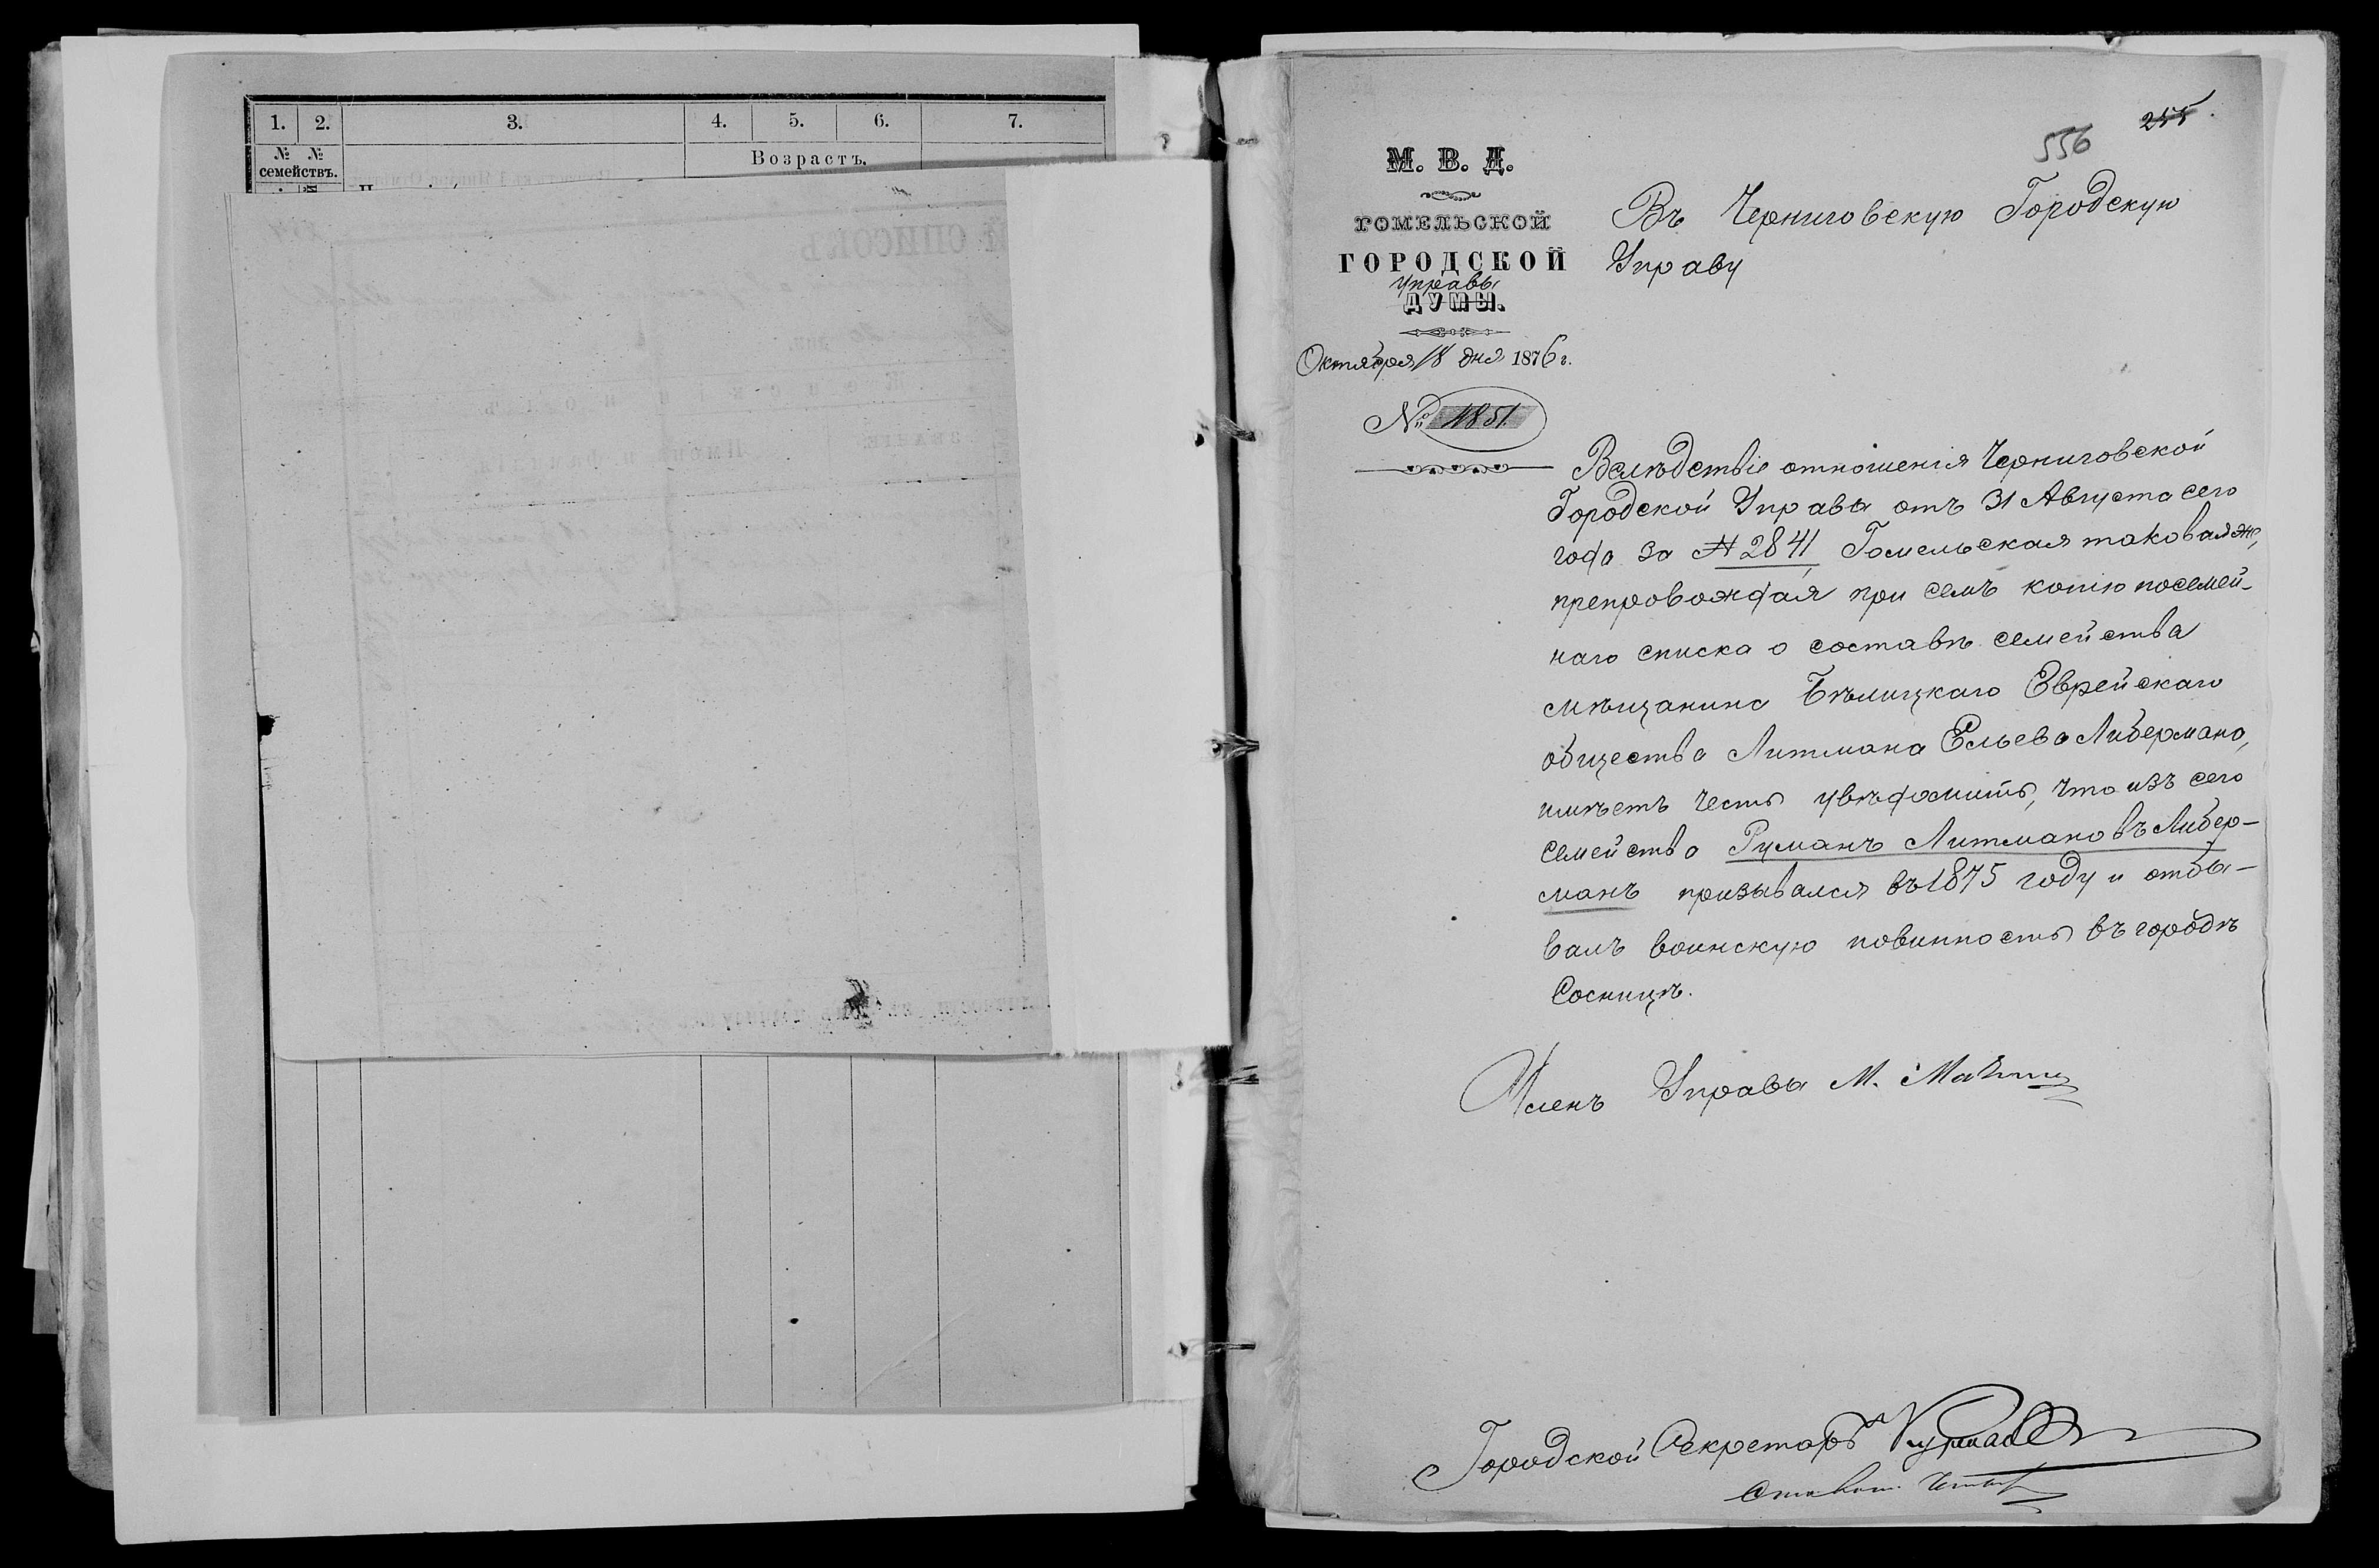 1. 2. 3. 4. 5. 6. 7.
№ №
семействъ.
Возрастъ.
255
556
М. В. Д.
ГОМЕЛЬСКОЙ
ГОРОДСКОЙ
Управы
ДУМЫ.
Октября 18 дня 1876 г.
№ 4851.
Въ Черниговскую Городскую
Управу
Вслѣдствіе отношенія Черниговской
Городской Управы отъ 31 Августа сего
года за № 2841 Гомельская таковая же,
препровождая при семъ копію посемей-
наго списка о составѣ семейства
мѣщанина Бѣлицкаго Еврейскаго
общества Литмана Ельева Либермана,
имѣетъ честь увѣдомить, что изъ сего
семейства Руманъ Литмановъ Либер-
манъ призывался въ 1875 году и отбы-
валъ воинскую повинность въ городѣ
Сосницѣ.
Членъ Управы М.
Городской Секретарь